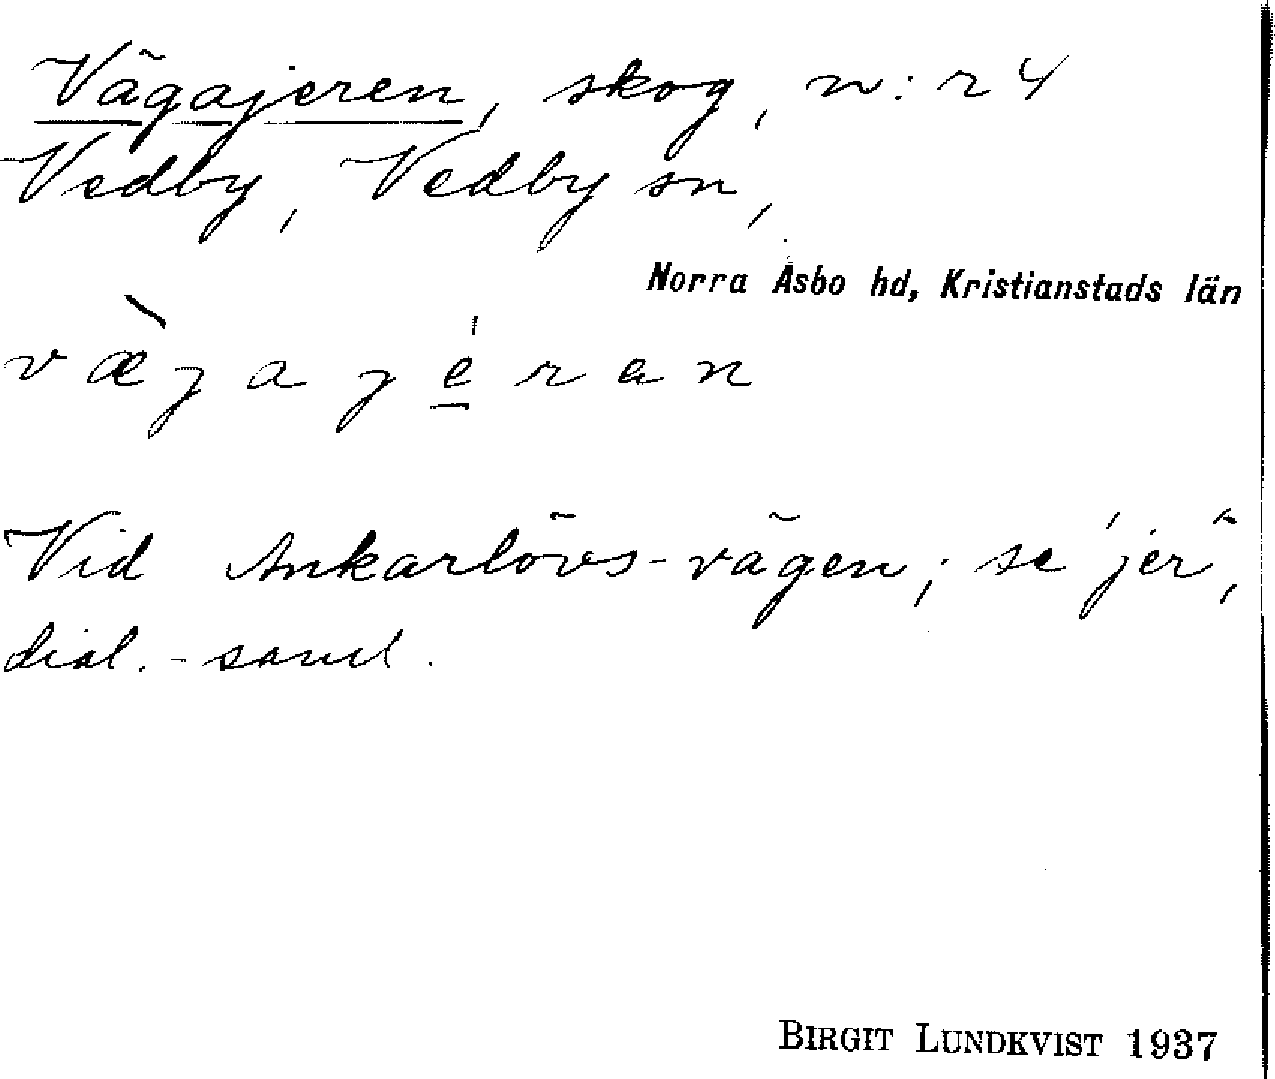 Vägajeren, skog, n:r 4
Vedby, Vedby sn,
Norra Åsbo hd, Kristianstads län
væ̀jajéran
Vid Ankarlövs-vägen; se 'jer',
dial.-saml.
BIRGIT LUNDKVIST 1937